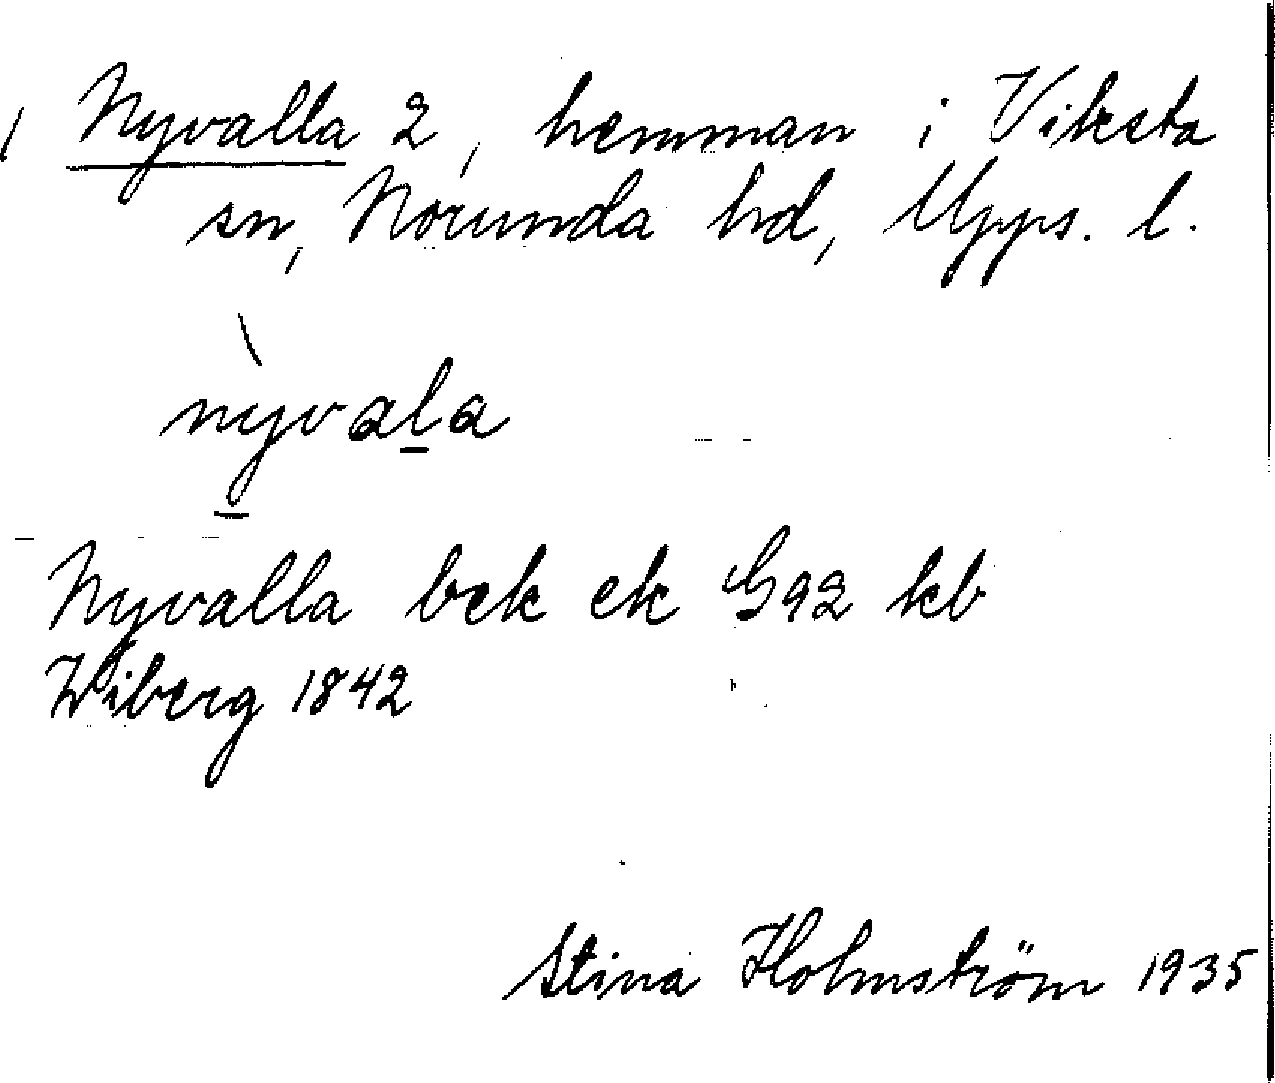 Nyvalla 2, hemman i Viksta
sn, Norunda hd, Upps. l.
nỳvala
Nyvalla bek ek G92 kb
Wiberg 1842
Stina Holmström 1935